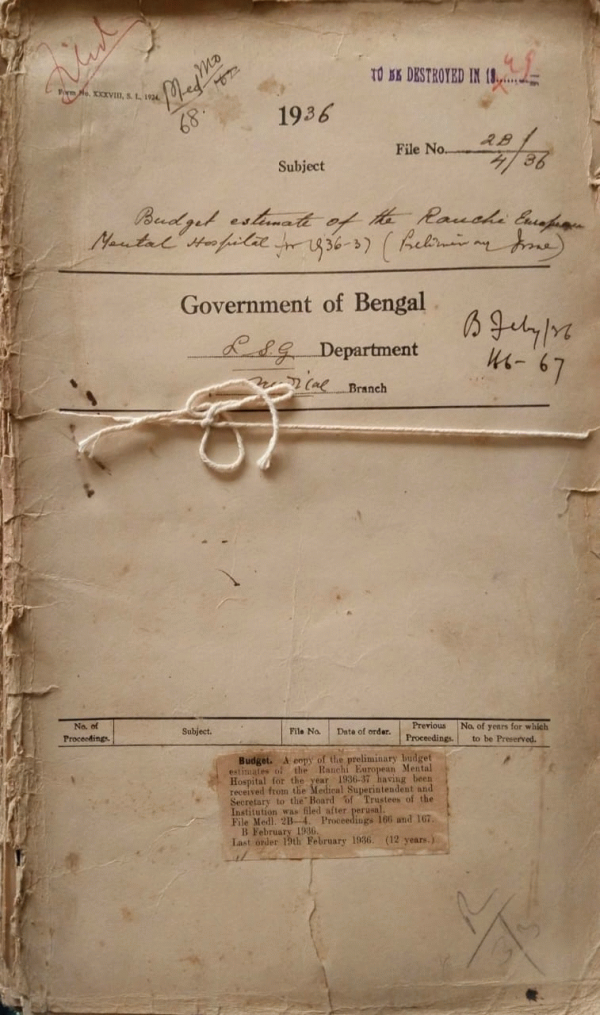 Filed
Form No. XXXVIII, S. L. 1924.
68.
TO BE DESTROYED IN 19
48
1936
File No. 2B/
4/36
Subject
Budget estimate of the Ranchi European
Mental Hospital for 1936-37 (Preliminary
Government of Bengal
L S.G. Department
Medical Branch
B Feby/36
67
No. of
Proceedings.
Subject.
File No.
Date of order.
Previous
Proceedings.
No. of years for which
to be Preserved.
Budget. A copy of the preliminary budget
estimates of the Ranchi European Mental
Hospital for the year 1936-37 having been
received from the Medical Superintendent and
Secretary to the Board of Trustees of the
Institution was filed after perusal.
File Medl. 2B—4. Proceedings 166 and 167.
B February 1936.
Last order 19th February 1936. (12 years.)